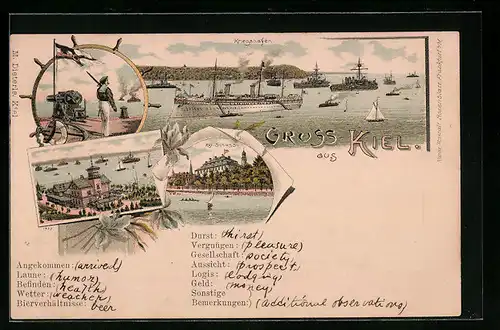 Kriegshafen
M. Dieterle, Kiel
GRUSS
aus
KIEL.
Kgl. Schloss
Angekommen: (arrived)
Laune: (humor)
Befinden: (health)
Wetter: (weather)
Bierverhältnisse: beer
Durst: thirst)
Vergnügen: (pleasure)
Gesellschaft: (society)
Aussicht: (prospect)
Logis: (lodging)
Geld: (money)
Sonstige
Bemerkungen: (additional observations)